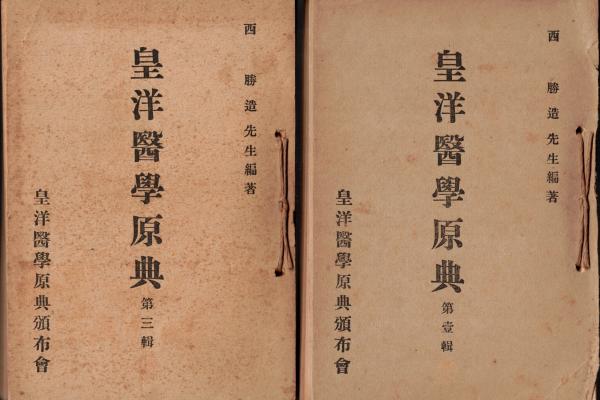 西勝造先生編著
皇洋醫學原典第壹輯
皇洋醫學原典頒布會
西勝造先生編著
皇洋醫學原典第三輯
皇洋醫學原典頒布會